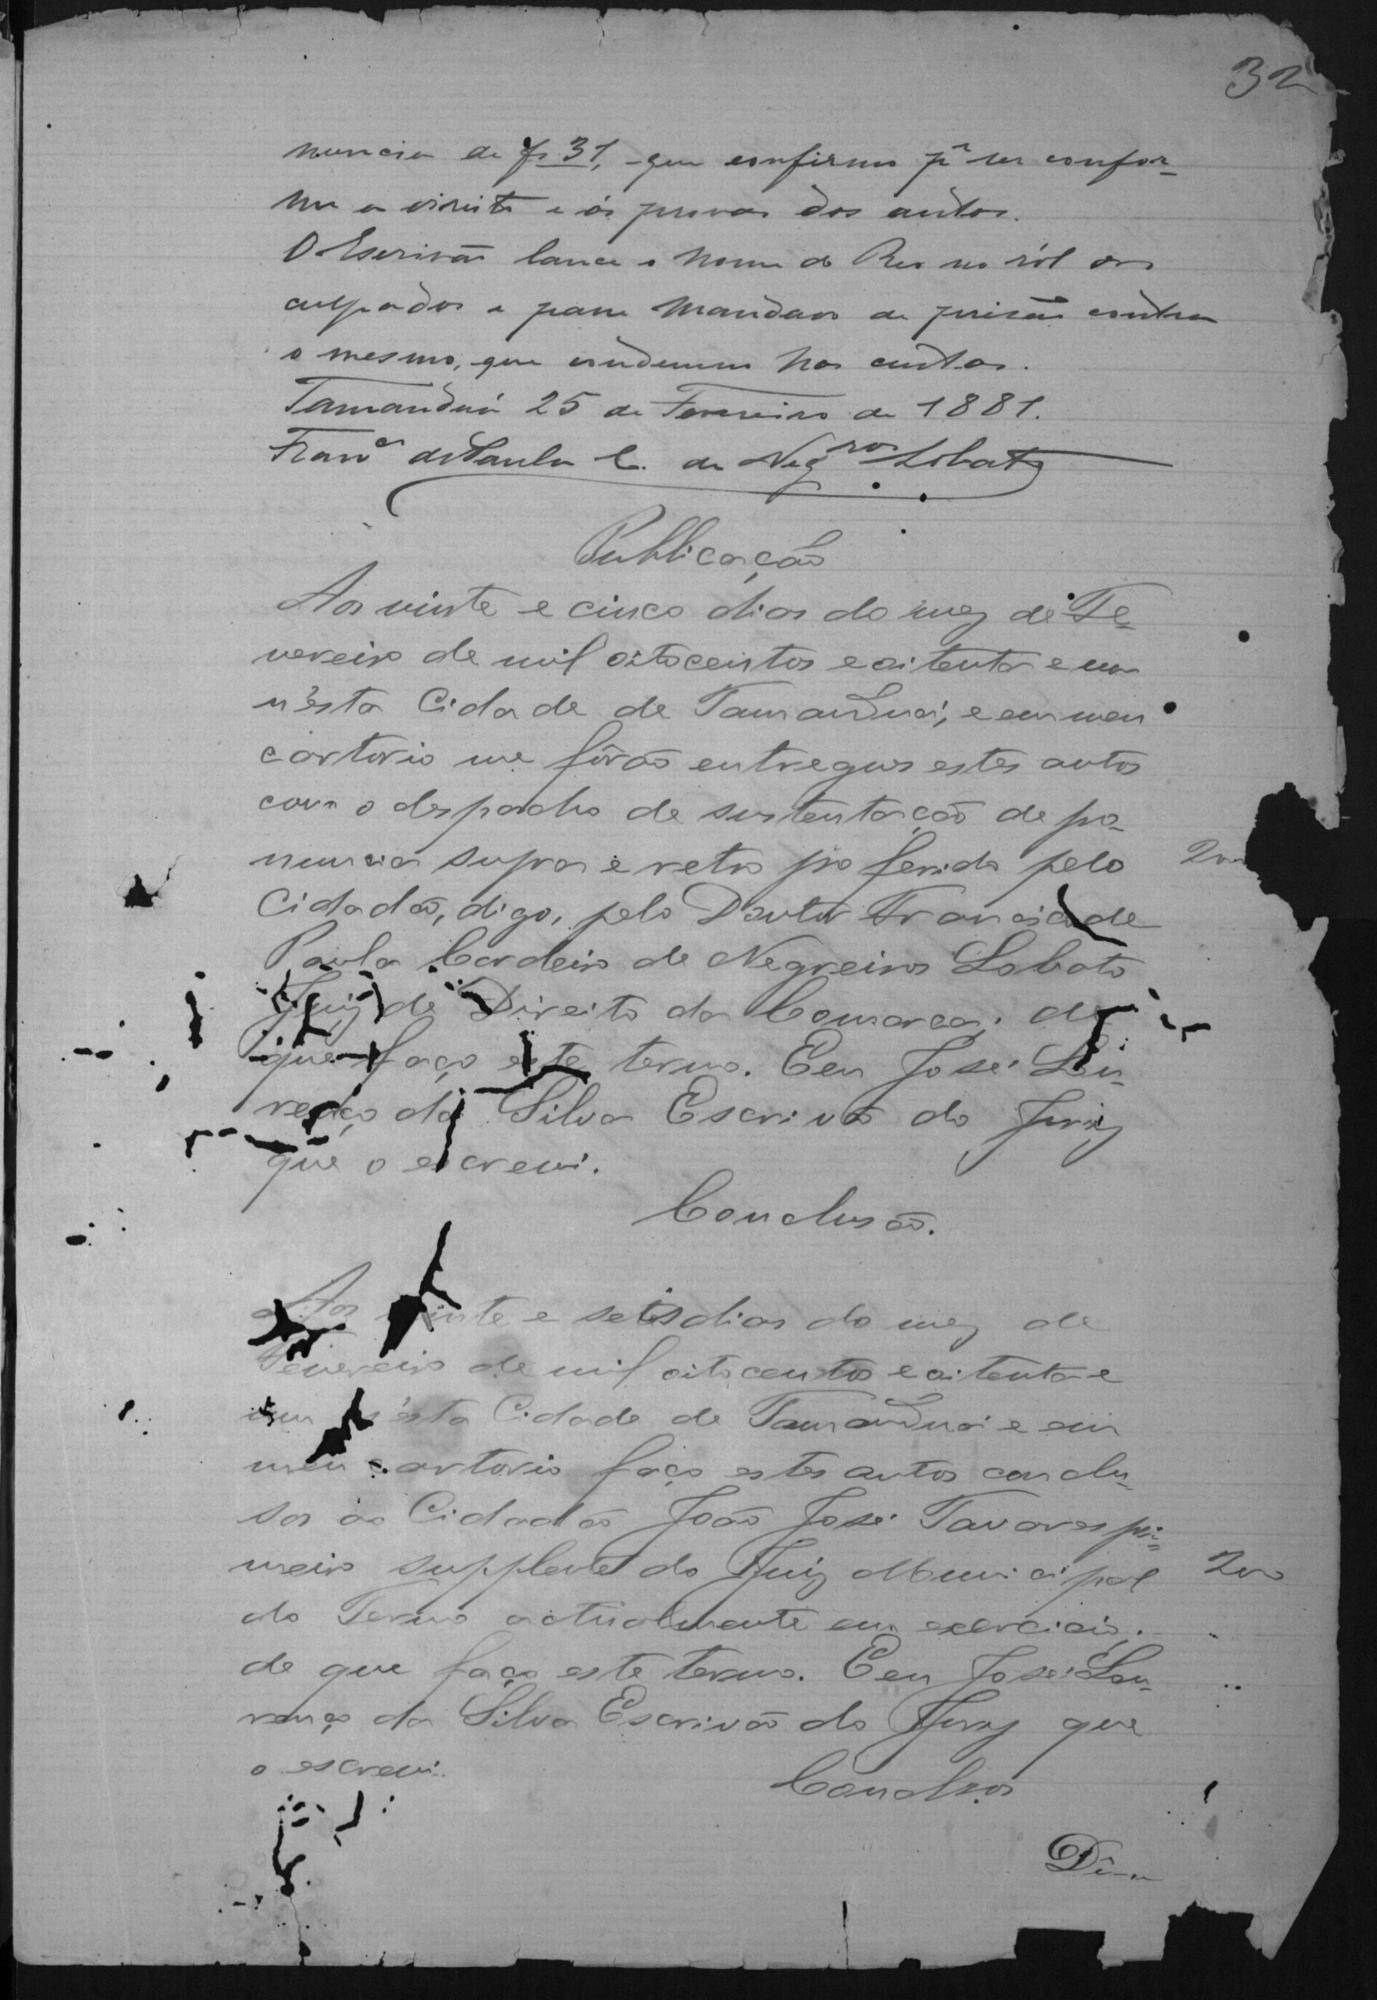 32
nuncia de fs 31, que confirmo pr ser confor-
me a direito e ás provas dos autos.
O Escrivão lance o nome do Reo no ról dos
culpados e passe mandado de prisão contra
o mesmo, que condemno nas custas.
Tamanduá 25 de Fevereiro de 1881.
Franco de Paula C. de Negros Lobato
Publicação
Aos vinte e cinco dias do mez de Fe-
vereiro de mil oitocentos e oitenta e um
n'ésta Cidade de Tamanduá, e em meu
cartorio me fôrão entregues estes autos
com o despacho de sustentação de pro-
nuncia supra e retro proferido pelo
Cidadão, digo, pelo Doutor Francisco de
Paula Cordeiro de Negreiros Lobato
Juiz de Direito da Comarca; do
que faço este termo. Eeu José Lou-
renço da Silva Escrivão do Jury
que o escrevi.
Conclusão.
Aos vinte e seis dias do mez de
Fevereiro de mil oitocentos e oitenta e
um n'ésta Cidade de Tamanduá e em
meu cartorio faço estes autos conclu-
sos ao Cidadão João José Tavares pri-
meiro supplente do Juiz Municipal
do Termo actualmente em exercicio;
de que faço este termo. Eeu José Lou-
renço da Silva Escrivão do Jury que
o escrevi.
Conclusos
200